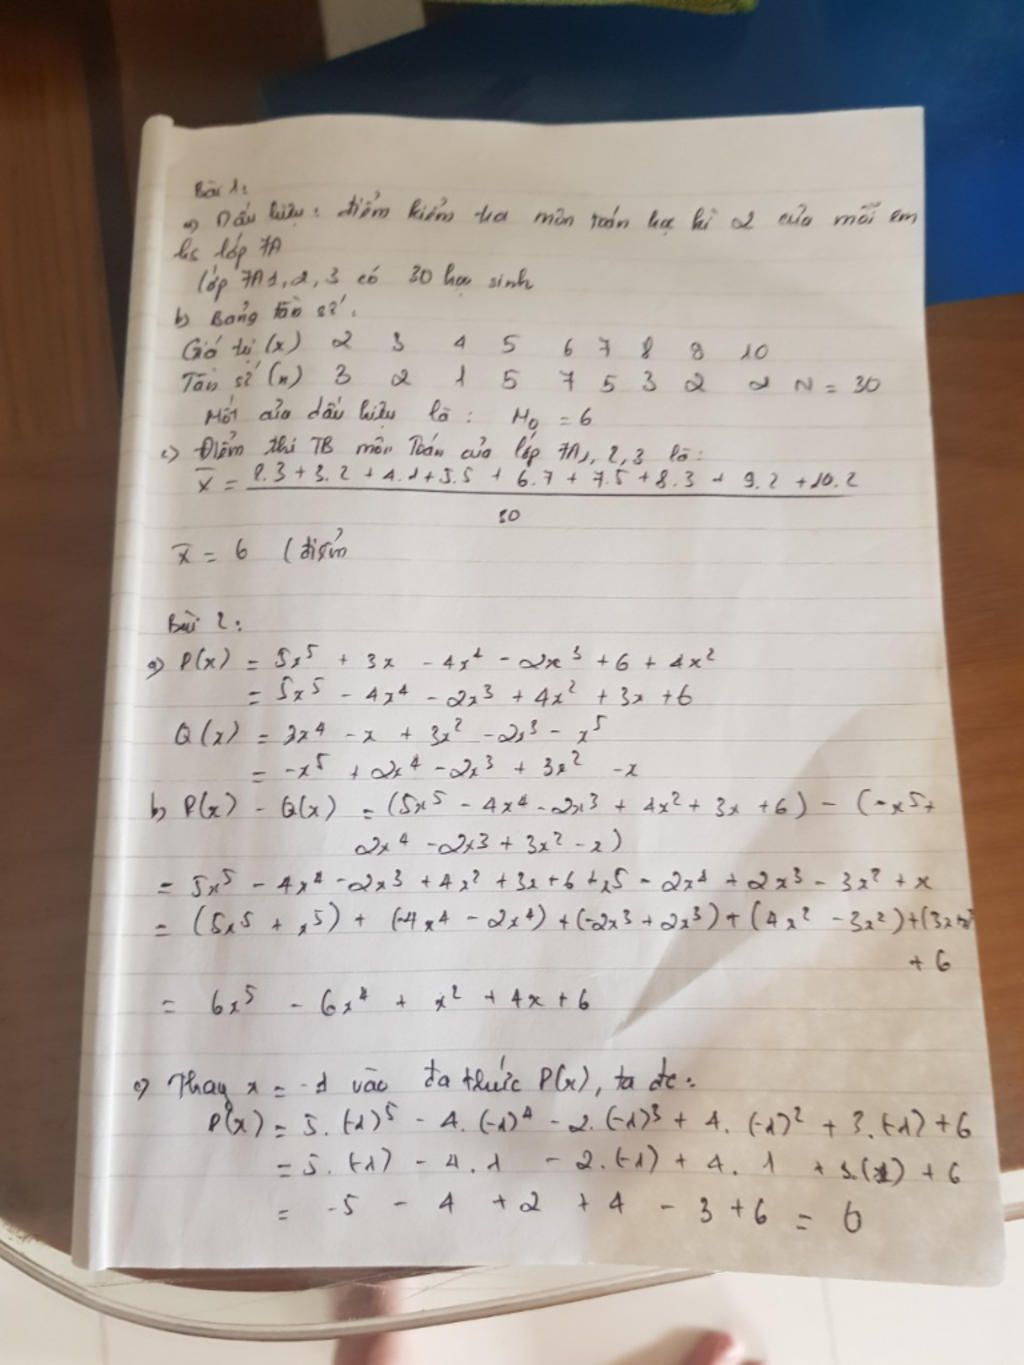 Bài 1:
a) Dấu hiệu: điểm kiểm tra môn toán học kì 2 của mỗi em
hs lớp 7A
lớp 7A1, 2, 3 có 30 học sinh
b) Bảng tần số:
Giá trị (x) 2 3 4 5 6 7 8 9 10
Tần số (n) 3 2 1 5 7 5 3 2 2 N = 30
Mốt của dấu hiệu là: M₀ = 6
c) Điểm thi TB môn Toán của lớp 7A1, 2, 3 là:
x̄ = 2.3 + 3.2 + 4.1 + 5.5 + 6.7 + 7.5 + 8.3 + 9.2 + 10.2
30
x̄ = 6 (điểm
Bài 2:
a) P(x) = 5x⁵ + 3x - 4x⁴ - 2x³ + 6 + 4x²
= 5x⁵ - 4x⁴ - 2x³ + 4x² + 3x + 6
Q(x) = 2x⁴ - x + 3x² - 2x³ - x⁵
= -x⁵ + 2x⁴ - 2x³ + 3x² - x
b) P(x) - Q(x) = (5x⁵ - 4x⁴ - 2x³ + 4x² + 3x + 6) - (-x⁵ +
2x⁴ - 2x³ + 3x² - x)
= 5x⁵ - 4x⁴ - 2x³ + 4x² + 3x + 6 + x⁵ - 2x⁴ + 2x³ - 3x² + x
= (5x⁵ + x⁵) + (-4x⁴ - 2x⁴) + (-2x³ + 2x³) + (4x² - 3x²) + (3x + x)
+ 6
= 6x⁵ - 6x⁴ + x² + 4x + 6
c) Thay x = -1 vào đa thức P(x), ta đc:
P(x) = 5.(-1)⁵ - 4.(-1)⁴ - 2.(-1)³ + 4.(-1)² + 3.(-1) + 6
= 5.(-1) - 4.1 - 2.(-1) + 4.1 + 3.(-1) + 6
= -5 - 4 + 2 + 4 - 3 + 6 = 0